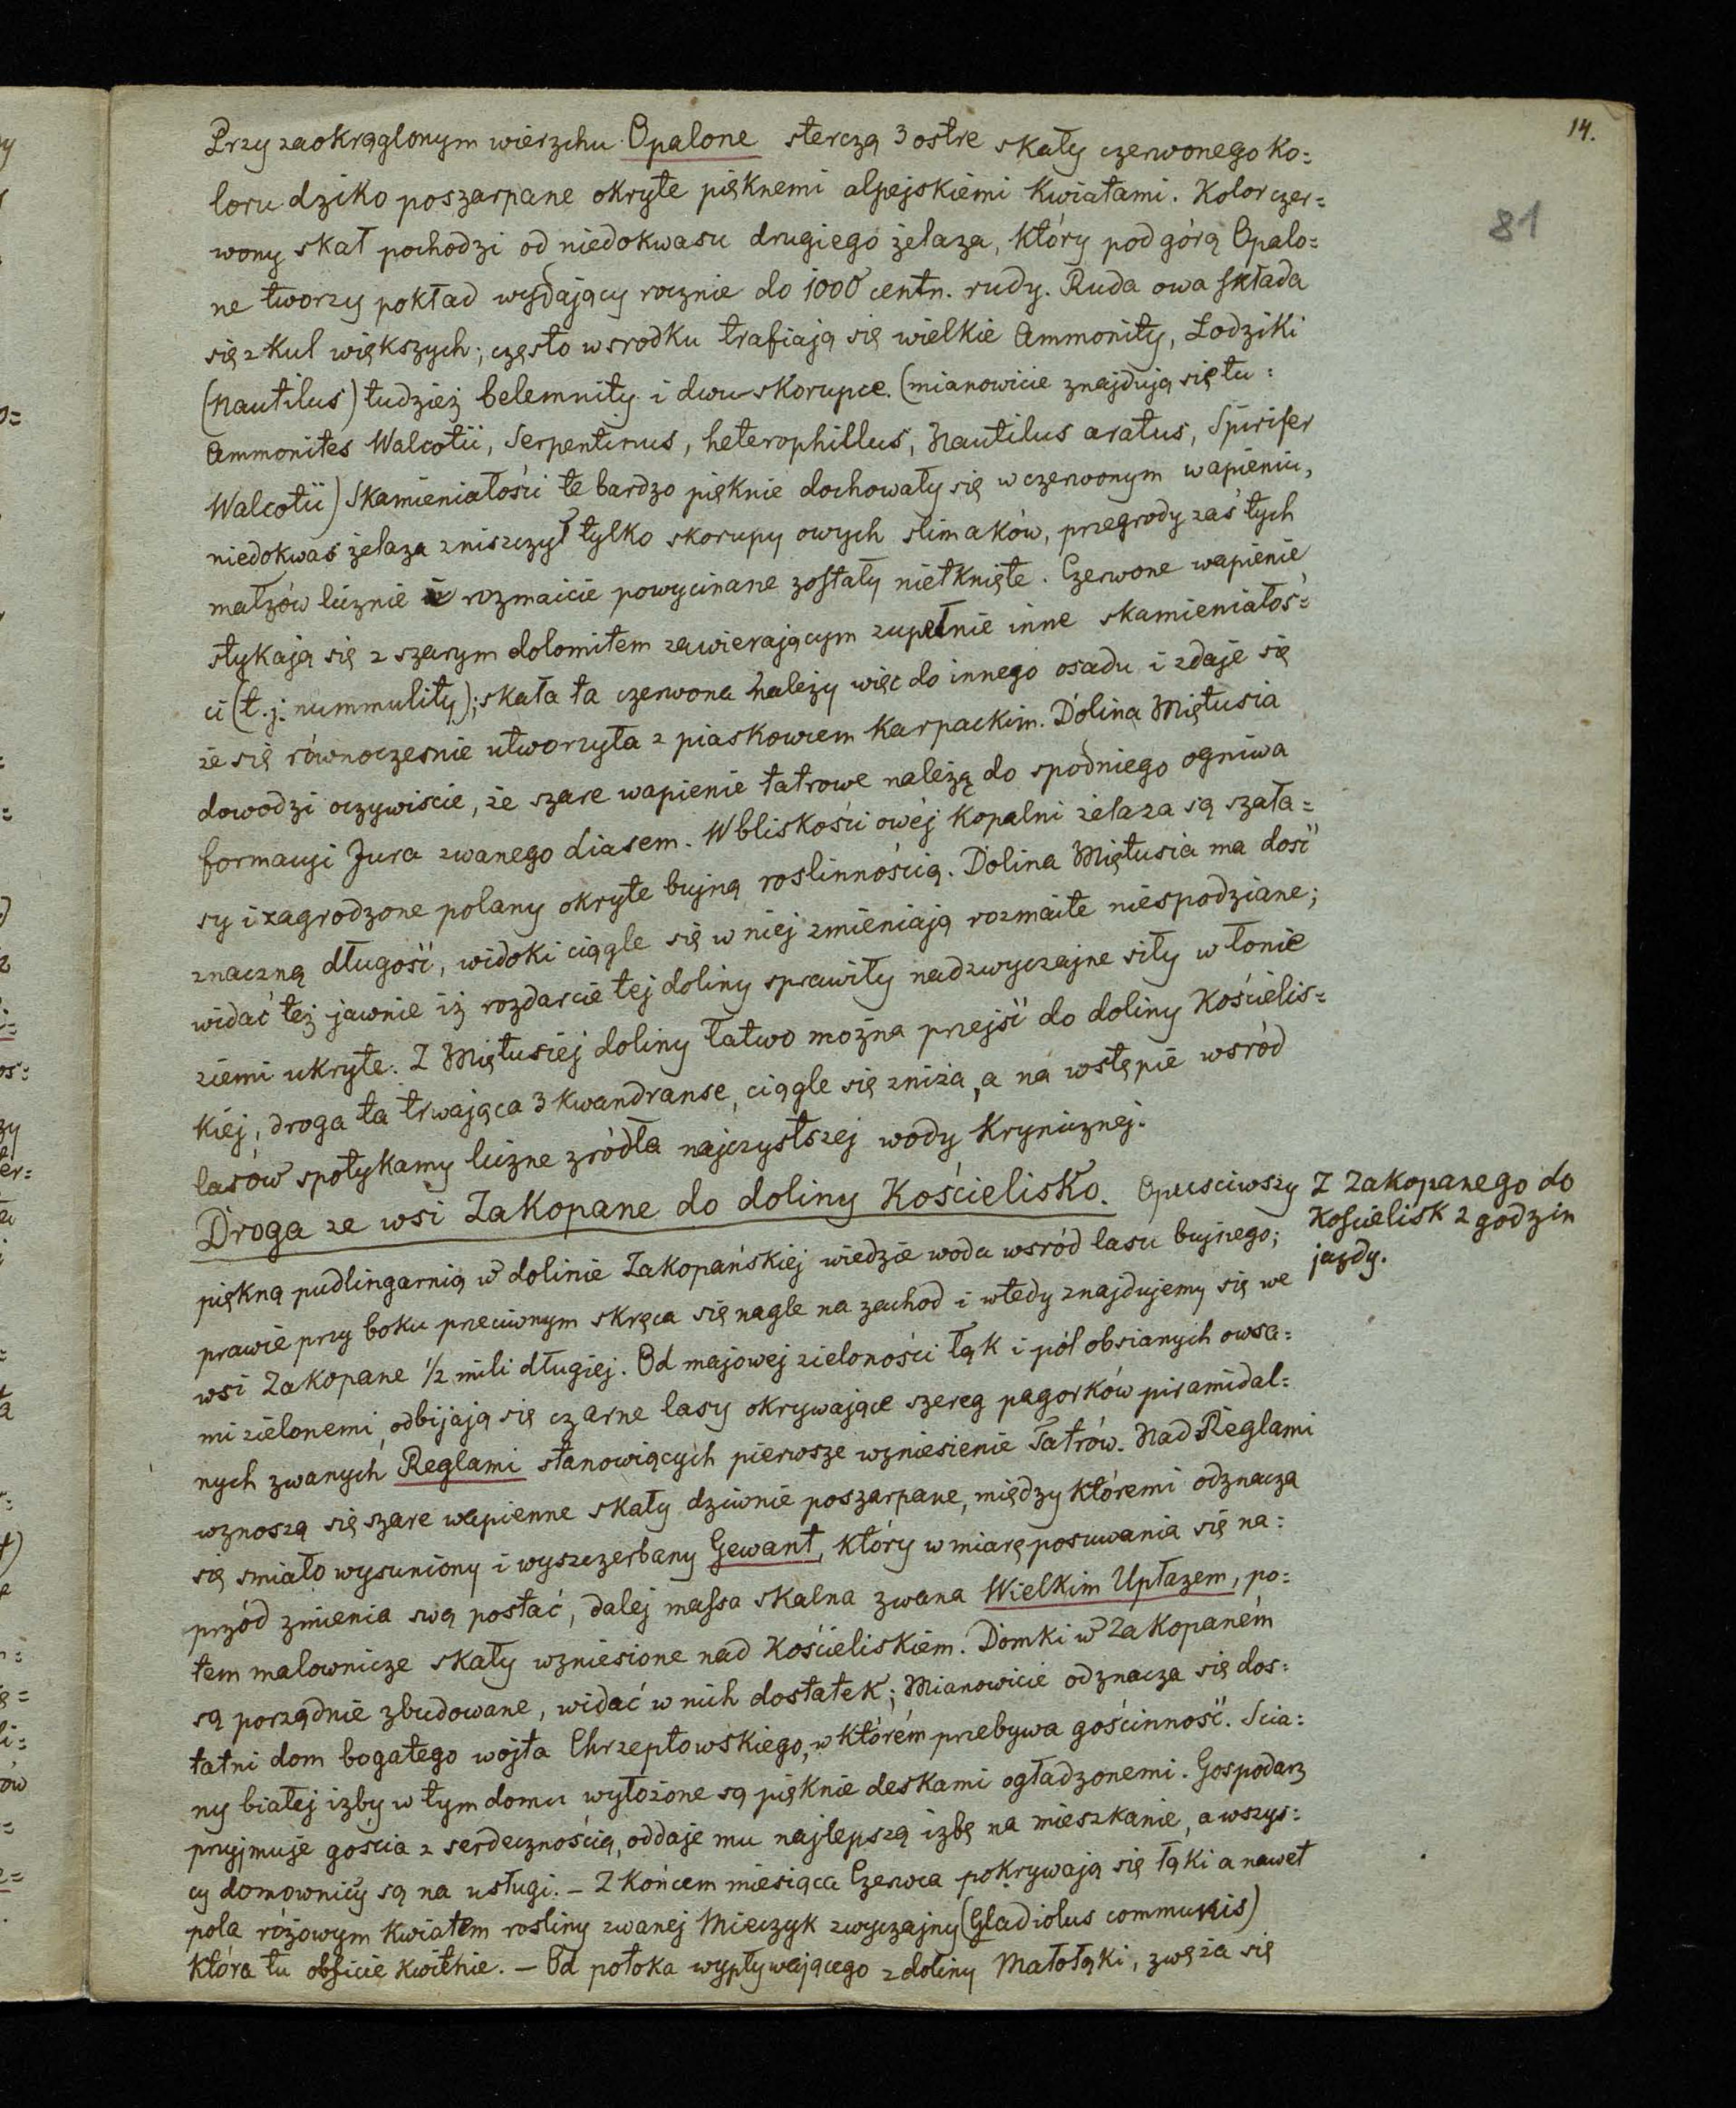 14.
81
Przy zaokrąglonym wierzchu Opalone sterczą 3 ostre skały czerwonego ko=
loru dziko poszarpane okryte pięknemi alpejskiemi kwiatami. Kolor czer=
wony skał pochodzi od niedokwasu drugiego żelaza, który pod górą Opalo=
ne tworzy pokład wydający rocznie do 1000 centn. rudy. Ruda owa składa
się z kul większych; często w srodku trafiają się wielkie Ammonity, Łodziki
(Nautilus) tudzież belemnity i dwu-skorupce. (mianowicie znajdują się tu:
Ammonites Walcotii, Serpentinus, heterophillus, Nautilus aratus, Spirifer
Walcotii) Skamieniałości te bardzo pięknie dochowały się w czerwonym wapieniu,
niedokwas żelaza zniszczył tylko skorupy owych slimaków, przegrody zaś tych
małżów licznie i rozmaicie powycinane zostały nietknięte. Czerwone wapienie
stykają się z szarym dolomitem zawierającym zupełnie inne skamieniałoś=
ci (t.j. nummulity); skała ta czerwona należy więc do innego osadu i zdaje się
że się równoczesnie utworzyła z piaskowcem karpackim. Dolina Miętusia
dowodzi oczywiscie, że szare wapienie tatrowe należą do spodniego ogniwa
formacyi Jura zwanego diasem. W bliskości owéj kopalni żelaza są szała=
sy i zagrodzone polany okryte bujną roslinnością. Dolina Miętusia ma dość
znaczną długość, widoki ciągle się w niej zmieniają rozmaite niespodziane;
widać też jawnie iż rozdarcie tej doliny sprawiły nadzwyczajne siły w łonie
ziemi ukryte. Z Miętusiej doliny łatwo można przejść do doliny Kościelis=
kiej, droga ta trwająca 3 kwandranse, ciągle się zniża, a na wstępie wsród
lasów spotykamy liczne zródła najczystszej wody krynicznej.
Droga ze wsi Zakopane do doliny Kościelisko. Opusciwszy
piękną pudlingarnią w dolinie Zakopańskiej wiedzie woda wsród lasu bujnego;
prawie przy boku przeciwnym skręca się nagle na zachod i wtedy znajdujemy się we
wsi Zakopane 1/2 mili długiej. Od majowej zieloności łąk i pól obsianych owsa=
mi zielonemi, odbijają się czarne lasy okrywające szereg pagorków piramidal=
nych zwanych Reglami stanowiących pierwsze wzniesienie Tatrów. Nad Reglami
wznoszą się szare wapienne skały dziwnie poszarpane, między któremi odznacza
się smiało wysuniony i wyszczerbany Gewant, który w miarę posuwania się na=
przód zmienia swą postać, dalej massa skalna zwana Wielkim Upłazem, po=
tem malownicze skały wzniesione nad Kościeliskiem. Domki w Zakopaném
są porządnie zbudowane, widać w nich dostatek; Mianowicie odznacza się dos=
tatni dom bogatego wojta Chrzeptowskiego, w którém przebywa gościnność. Scia=
ny białej izby w tym domu wyłożone są pięknie deskami ogładzonemi. Gospodarz
przyjmuje gościa z serdecznością, oddaje mu najlepszą izbę na mieszkanie, a wszys=
cy domownicy są na usługi. – Z końcem miesiąca Czerwca pokrywają się łąki a nawet
pola różowym kwiatem rosliny zwanej Mieczyk zwyczajny (Gladiolus communis)
która tu obficie kwitnie. – Od potoka wypływającego z doliny Małołąki, zwęża się
Z Zakopanego do
Koscielisk 2 godzin
jazdy.